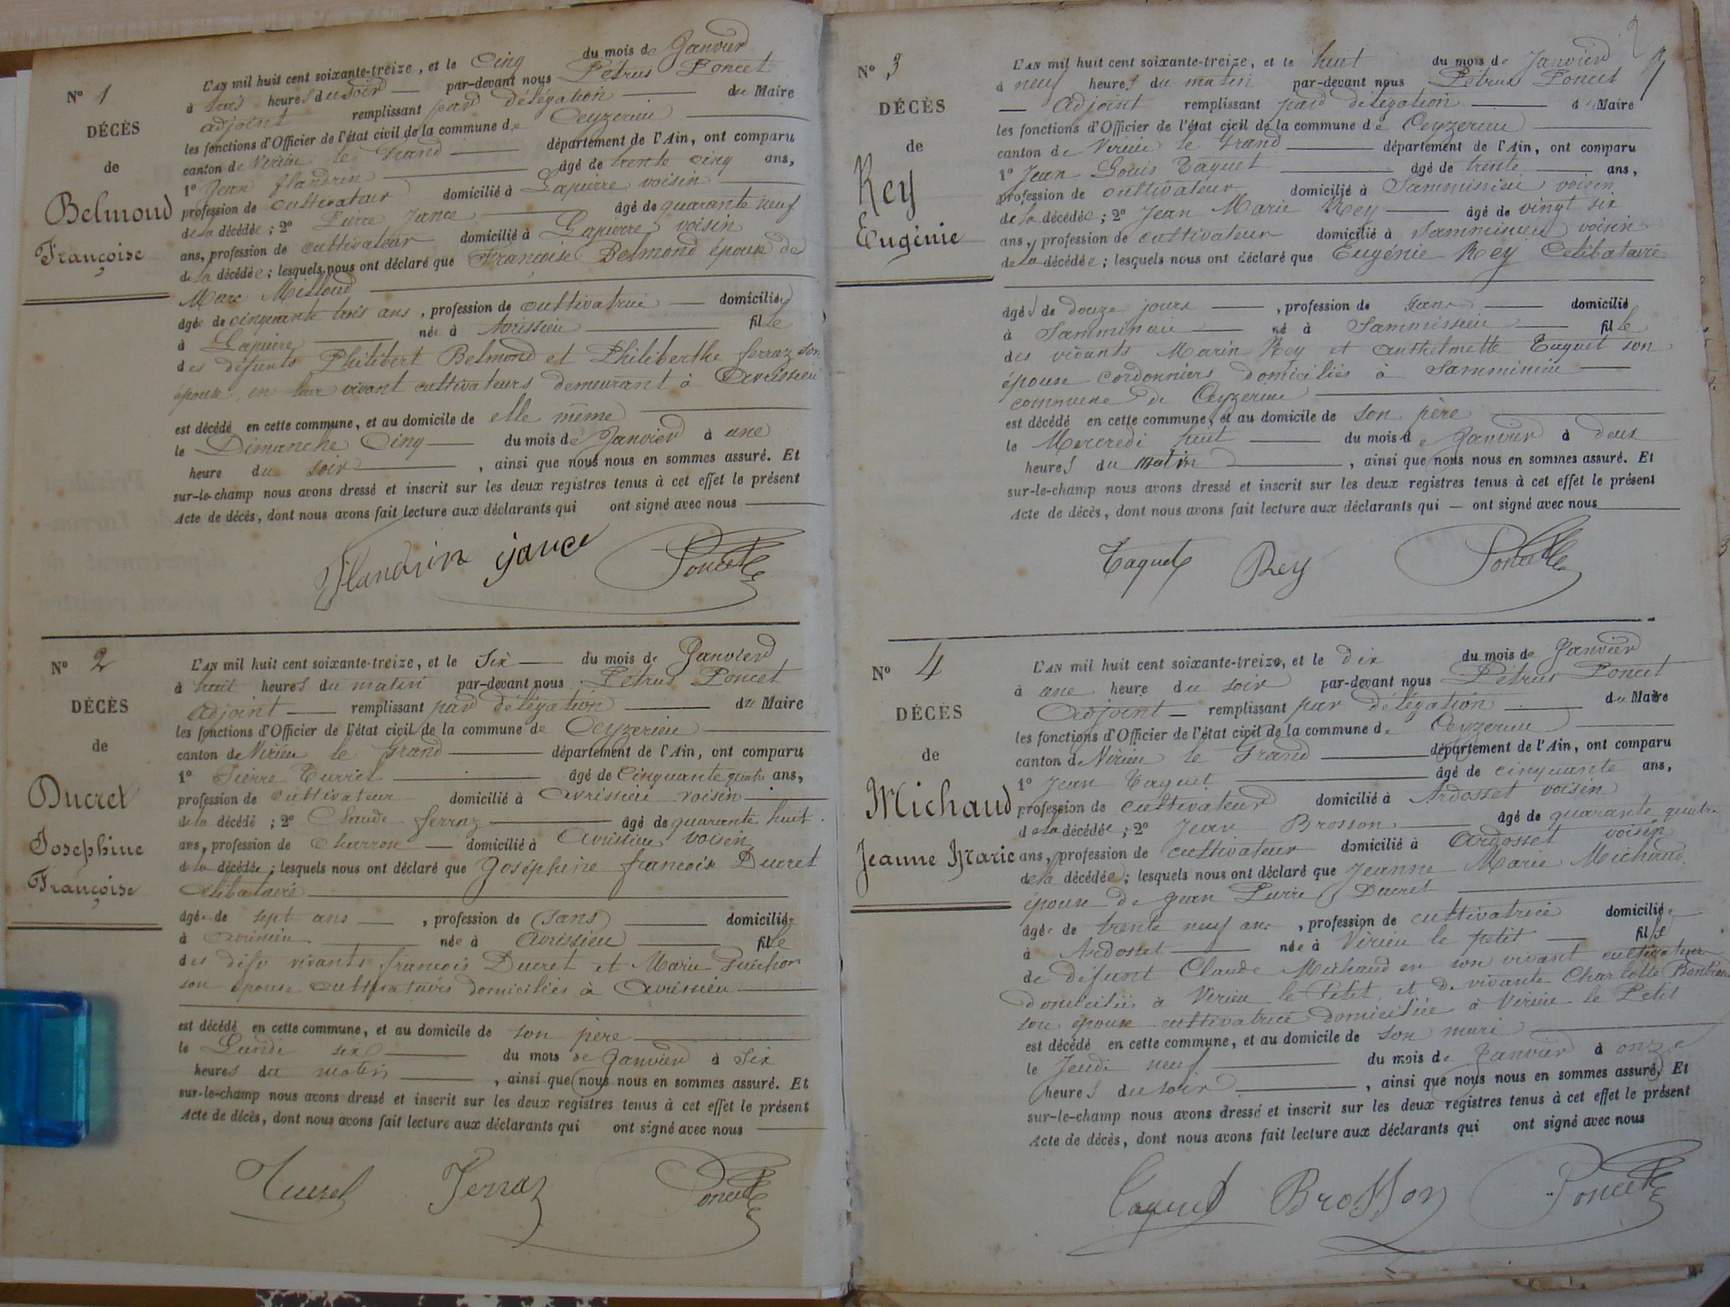 N° 1
DÉCÈS
de
Belmond
Françoise
L'AN mil huit cent soixante-treize, et le Cinq du mois de Janvier
à heures du soir par-devant nous Pétrus Poncet
adjoint remplissant par délégation du Maire
les fonctions d'Officier de l'état civil de la commune de Ceyzerieu
canton de Virieu le Grand département de l'Ain, ont comparu
1° Jean Flandrin âgé de trente cinq ans,
profession de cultivateur domicilié à Lapierre voisin
de la décédée ; 2° Pierre Jance âgé de quarante neuf
ans, profession de cultivateur domicilié à Lapierre voisin
de la décédée ; lesquels nous ont déclaré que Françoise Belmond épouse de
Marc
âgée de cinquante trois ans, profession de cultivatrice domiciliée
à Lapierre née à Avrissieu fille
des défunts Philibert Belmond et Philiberthe ferraz son
épouse en leur vivant cultivateurs demeurant à Avrissieu
est décédé en cette commune, et au domicile de elle même
le Dimanche Cinq du mois de Janvier à une
heure du soir, ainsi que nous nous en sommes assuré. Et
sur-le-champ nous avons dressé et inscrit sur les deux registres tenus à cet effet le présent
Acte de décès, dont nous avons fait lecture aux déclarants qui ont signé avec nous
Flandrin Jance Poncet
N° 2
DÉCÈS
de
Ducret
Josephine
Françoise
L'AN mil huit cent soixante-treize, et le Six du mois de Janvier
à huit heures du matin par-devant nous Pétrus Poncet
Adjoint remplissant par délégation du Maire
les fonctions d'Officier de l'état civil de la commune de Ceyzerieu
canton de Virieu le Grand département de l'Ain, ont comparu
1° Pierre âgé de Cinquante quatre ans,
profession de cultivateur domicilié à Avrissieu voisin
de la décédé ; 2° Claude ferraz âgé de quarante huit
ans, profession de Charron domicilié à Avrissieu voisin
de la décédée ; lesquels nous ont déclaré que Joséphine francoise Ducret
Célibataire
âgée de sept ans, profession de (sans) domiciliée
à Avrissieu née à Avrissieu fille
des vivants francois Ducret et Marie
son épouse cultivateurs domiciliés à Avrissieu
est décédé en cette commune, et au domicile de son père
le Lundi six du mois de Janvier à Six
heures du matin, ainsi que nous nous en sommes assuré. Et
sur-le-champ nous avons dressé et inscrit sur les deux registres tenus à cet effet le présent
Acte de décès, dont nous avons fait lecture aux déclarants qui ont signé avec nous
Ferraz Poncet
2
N° 3
DÉCÈS
de
Rey
Eugénie
L'AN mil huit cent soixante-treize, et le huit du mois de Janvier
à neuf heures du matin par-devant nous Pétrus Poncet
Adjoint remplissant par délégation du Maire
les fonctions d'Officier de l'état civil de la commune de Ceyzerieu
canton de Virieu le Grand département de l'Ain, ont comparu
1° Jean Louis Taquet âgé de trente ans,
profession de cultivateur domicilié à Sammissieu voisin
de la décédée ; 2° Jean Marie Rey âgé de vingt six
ans, profession de cultivateur domicilié à Sammissieu voisin
de la décédée ; lesquels nous ont déclaré que Eugénie Rey Célibataire
âgé de douze jours, profession de sans domicilié
à Sammissieu né à Sammissieu fille
des vivants Marin Rey et Anthelmette Taquet son
épouse cordonniers domiciliés à Sammissieu
commune de Ceyzerieu
est décédé en cette commune, et au domicile de son père
le Mercredi huit du mois de Janvier à deux
heures du matin, ainsi que nous nous en sommes assuré. Et
sur-le-champ nous avons dressé et inscrit sur les deux registres tenus à cet effet le présent
Acte de décès, dont nous avons fait lecture aux déclarants qui — ont signé avec nous
Taquet Rey Poncet
N° 4
DÉCÈS
de
Michaud
Jeanne Marie
L'AN mil huit cent soixante-treize, et le dix du mois de Janvier
à une heure du soir par-devant nous Pétrus Poncet
Adjoint remplissant par délégation du Maire
les fonctions d'Officier de l'état civil de la commune de Ceyzerieu
canton de Virieu le Grand département de l'Ain, ont comparu
1° Jean Taquet âgé de cinquante ans,
profession de cultivateur domicilié à Ardosset voisin
de la décédée ; 2° Jean Brosson âgé de quarante quatre
ans, profession de cultivateur domicilié à Ardosset voisin
de la décédée ; lesquels nous ont déclaré que Jeanne Marie Michaud
épouse de Jean Pierre Ducret
âgée de trente neuf ans, profession de cultivatrice domiciliée
à Ardosset née à Virieu le petit fille
de défunt Claude Michaud en son vivant cultivateur
domicilié à Virieu le Petit et de vivante Charlotte
son épouse cultivatrice domiciliée à Virieu le Petit
est décédé en cette commune, et au domicile de son mari
le Jeudi neuf du mois de Janvier à onze
heures du soir, ainsi que nous nous en sommes assuré. Et
sur-le-champ nous avons dressé et inscrit sur les deux registres tenus à cet effet le présent
Acte de décès, dont nous avons fait lecture aux déclarants qui ont signé avec nous
Taquet Brosson Poncet